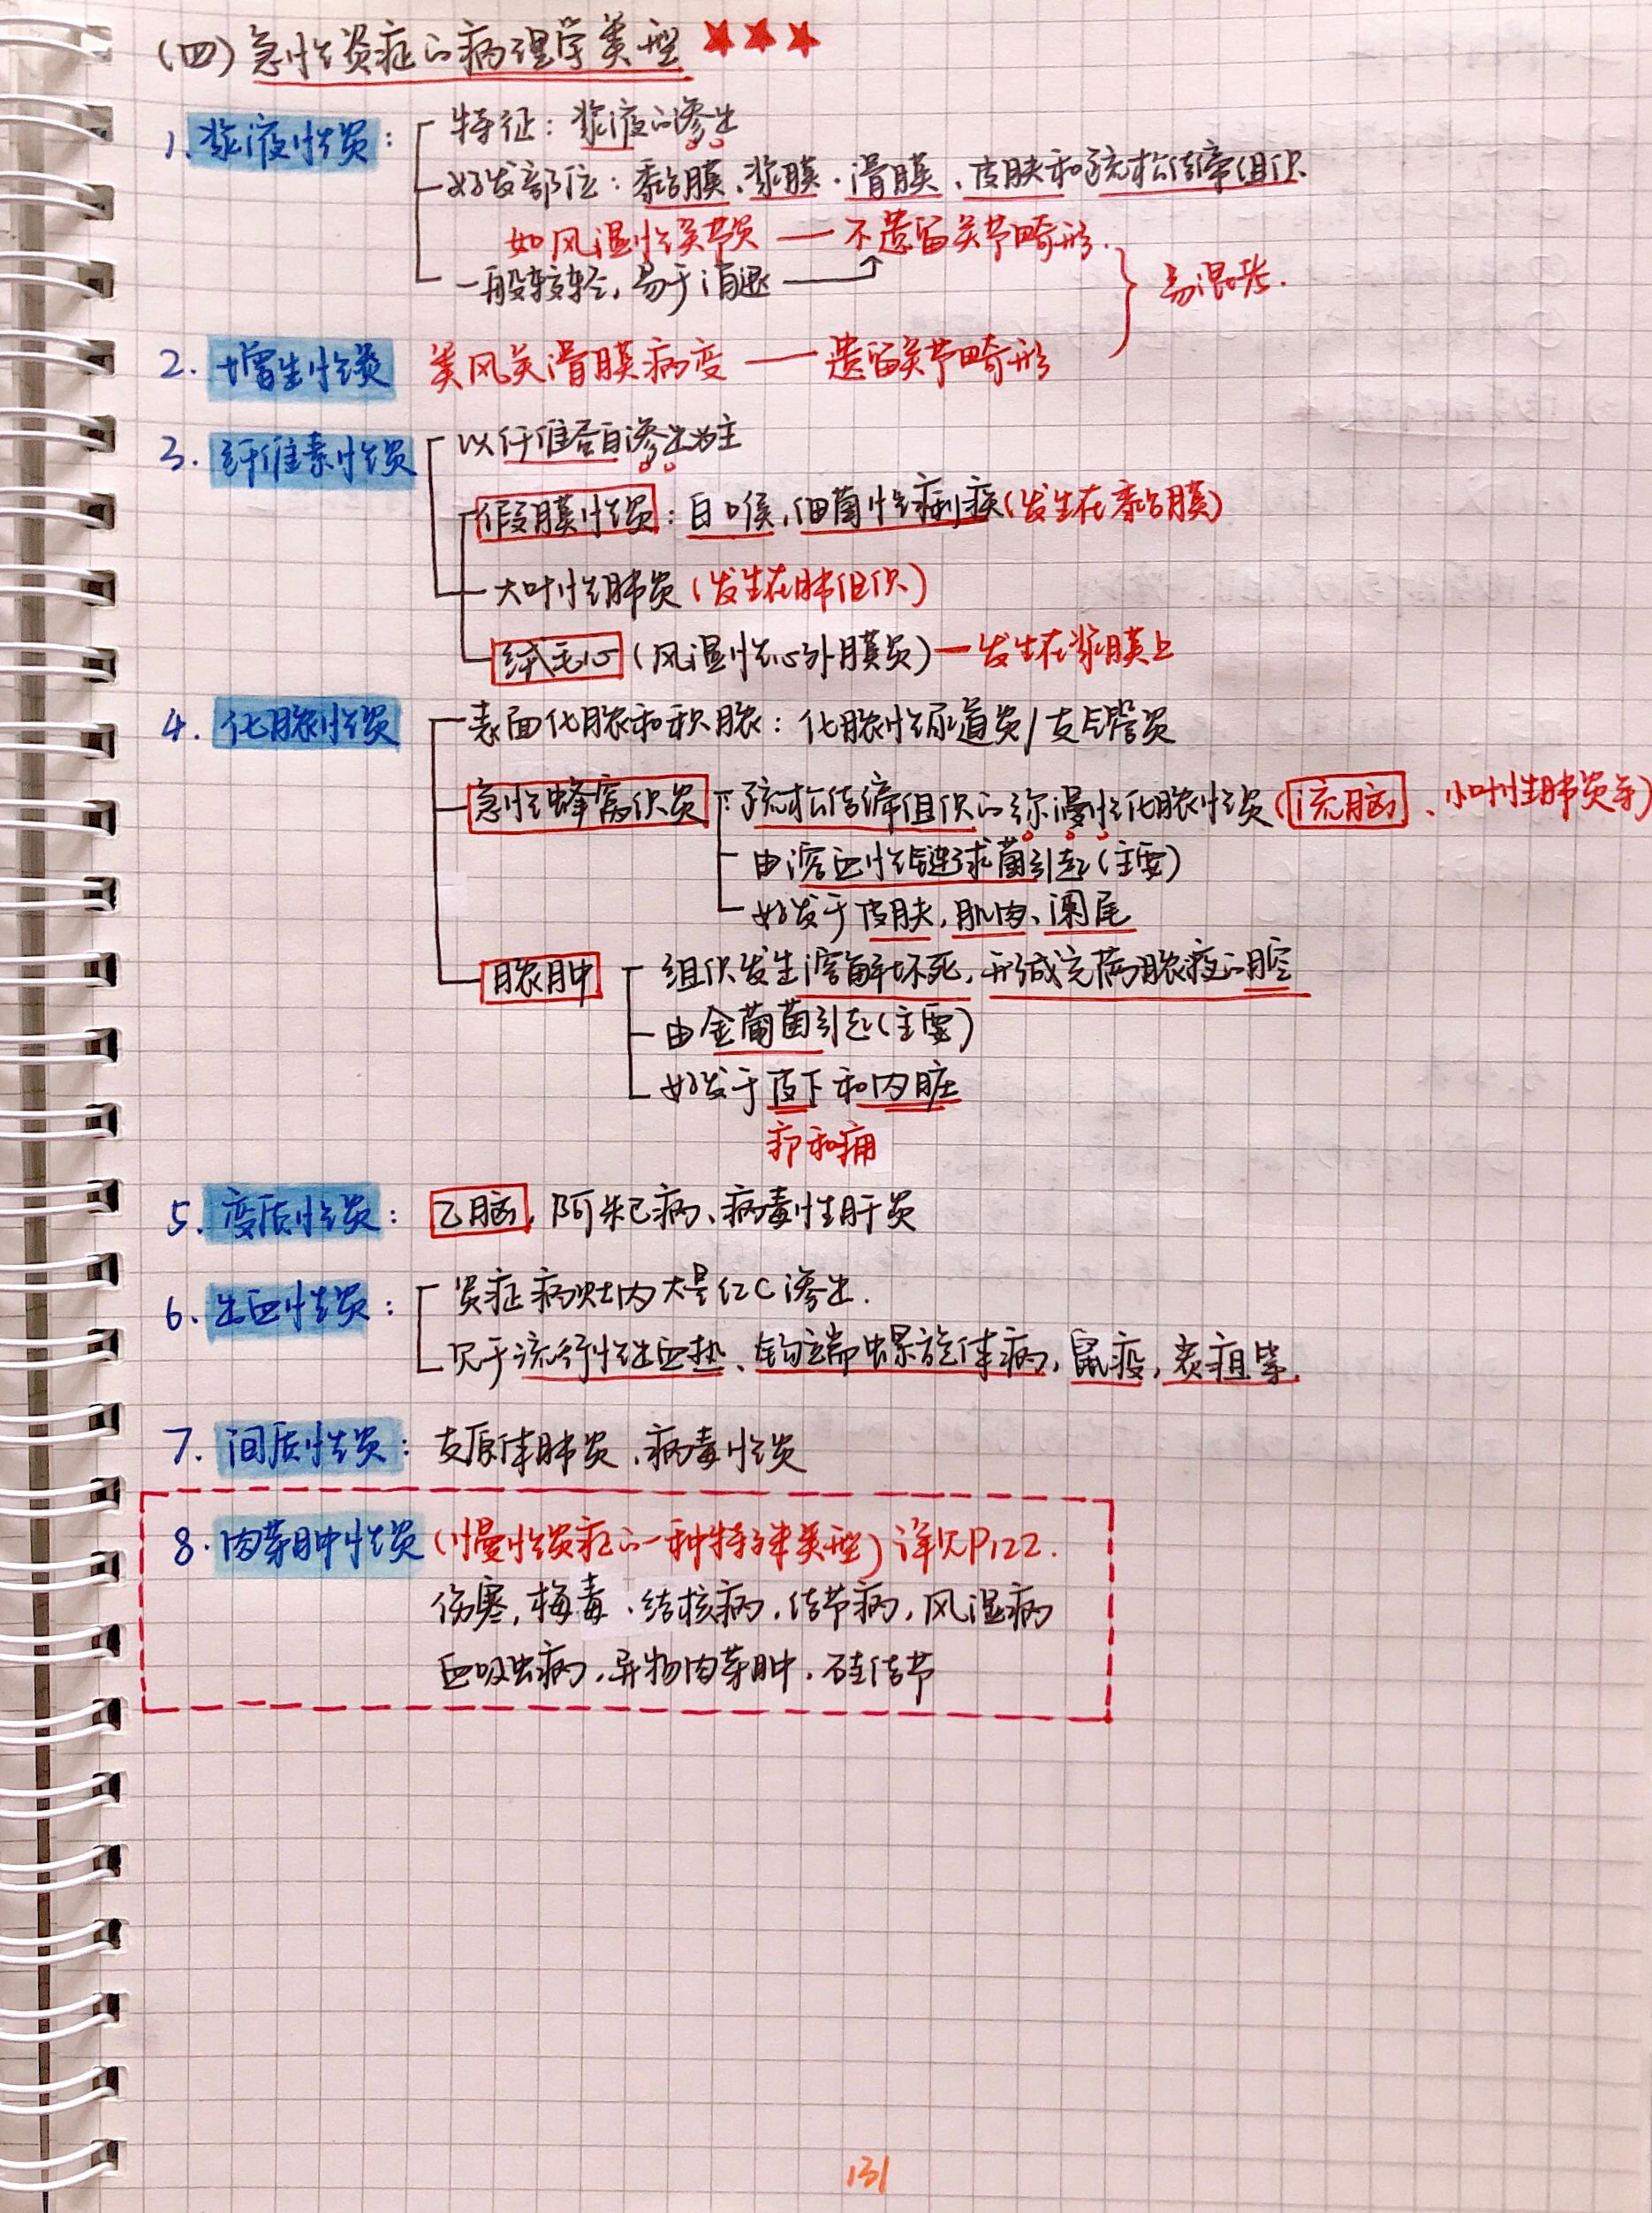 (四)急性炎症的病理学类型 ★★★
1. 浆液性炎: 特征: 浆液的渗出
好发部位: 黏膜、浆膜、滑膜、皮肤和疏松结缔组织
如风湿性关节炎 — 不遗留关节畸形.
一般较轻, 易于消退
易混淆.
2. 增生性炎 类风关滑膜病变 — 遗留关节畸形
3. 纤维素性炎 以纤维蛋白渗出为主
假膜性炎: 白喉, 细菌性痢疾(发生在黏膜)
大叶性肺炎(发生在肺组织)
绒毛心(风湿性心外膜炎)—发生在浆膜上
4. 化脓性炎 表面化脓和积脓: 化脓性尿道炎/支气管炎
急性蜂窝织炎: 疏松结缔组织的弥漫性化脓性炎(流脑、小叶性肺炎等)
由溶血性链球菌引起(主要)
好发于皮肤, 肌肉、阑尾
脓肿 组织发生溶解坏死, 形成充满脓液的腔
由金葡菌引起(主要)
好发于皮下和内脏
疖和痈
5. 变质性炎: 乙脑, 阿米巴病、病毒性肝炎
6. 出血性炎: 炎症病灶内大量红C渗出.
见于流行性出血热、钩端螺旋体病, 鼠疫, 炭疽等.
7. 间质性炎: 支原体肺炎、病毒性炎
8. 肉芽肿性炎(慢性炎症的一种特殊类型)详见P122.
伤寒, 梅毒、结核病, 结节病, 风湿病
血吸虫病, 异物肉芽肿, 硅结节
131